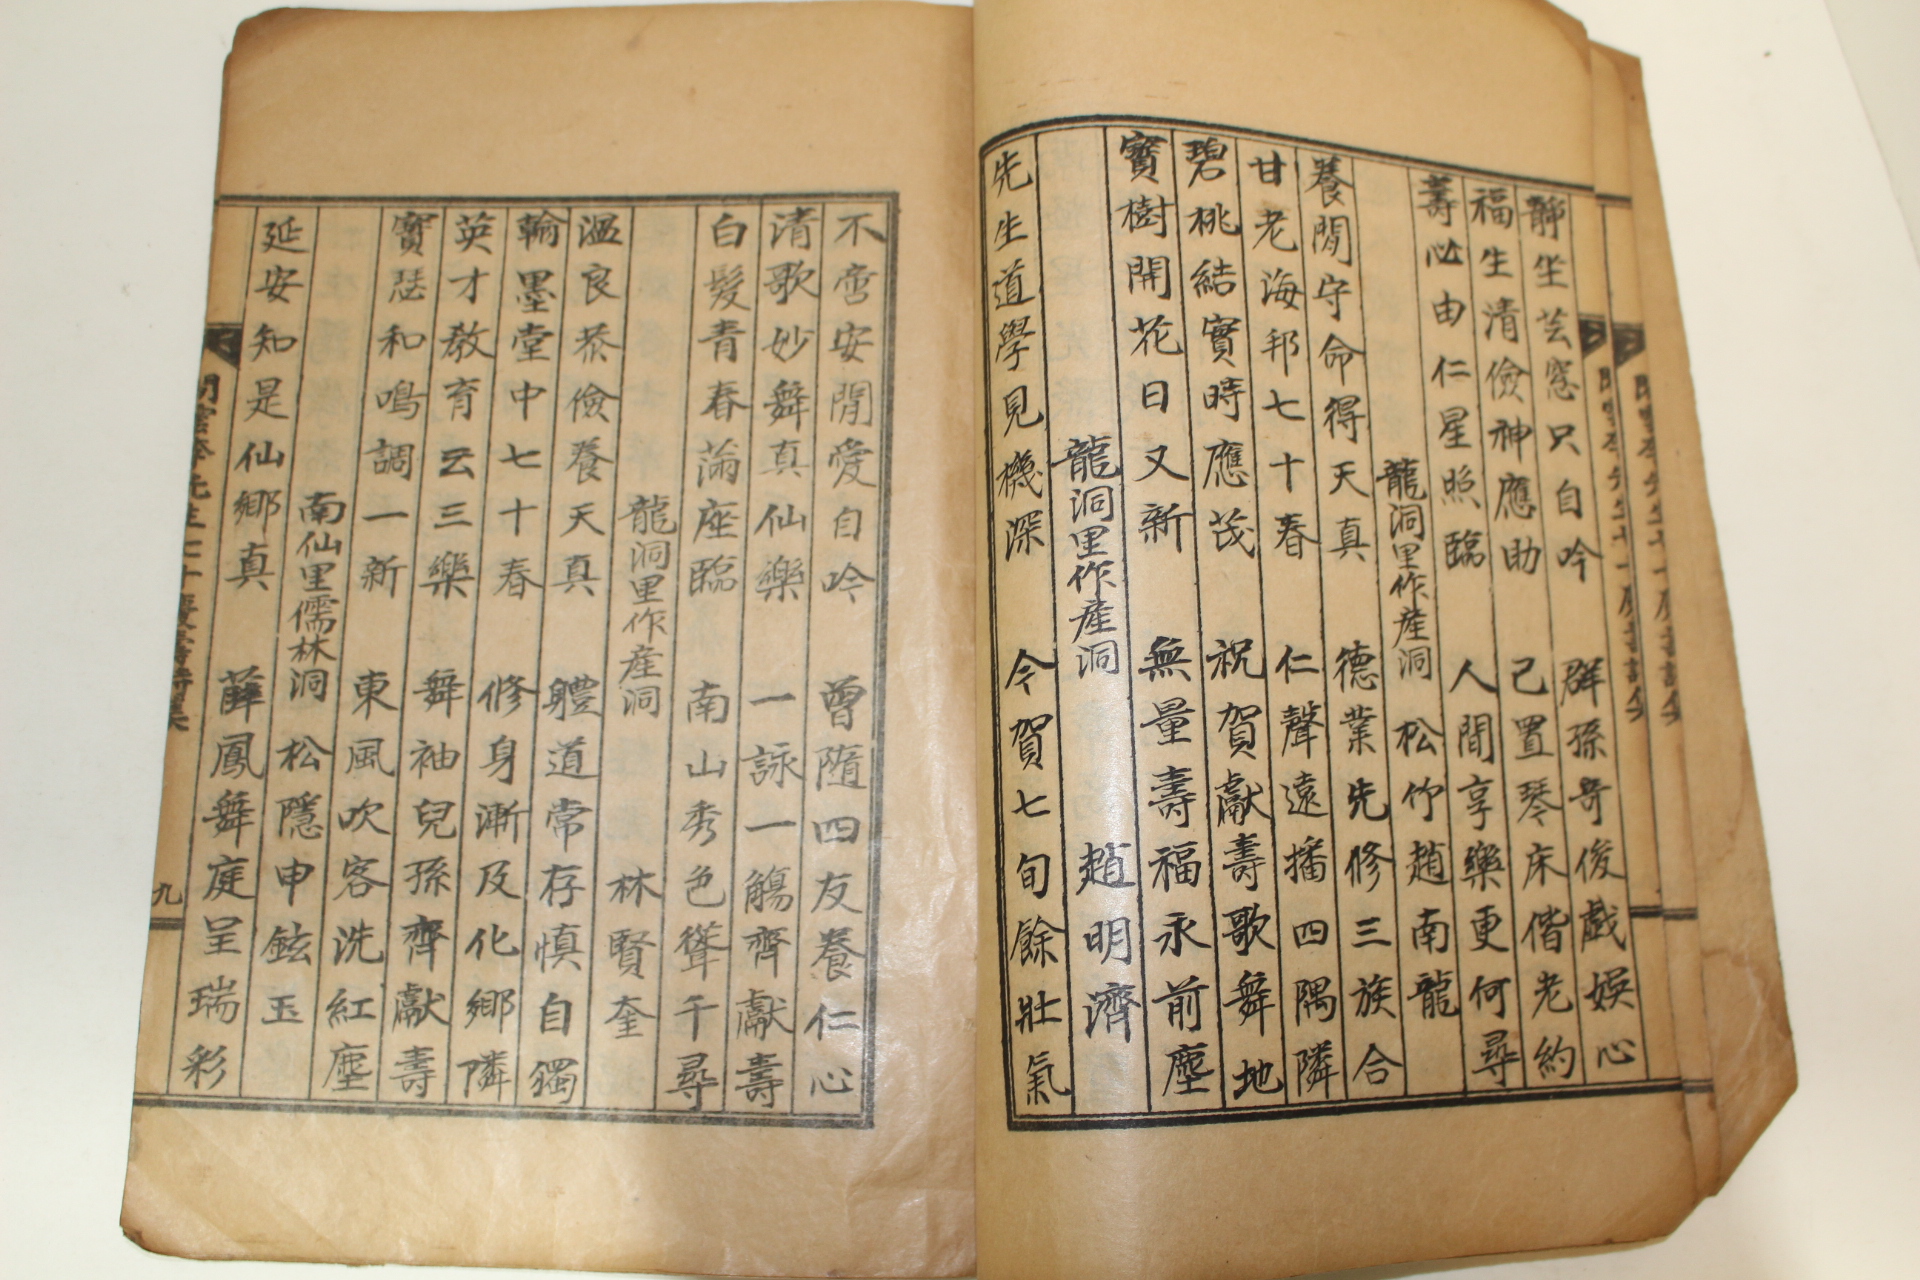 靜坐芸窓只自吟 群孫奇俊戱娛心
福生清儉神應助 已置琴床偕老約
壽必由仁星照臨 人間享樂更何尋
龍洞里作産洞 松竹趙南龍
養閒守命得天真 德業先修三族合
甘老海邦七十春 仁聲遠播四隅隣
碧桃結實時應茂 祝賀獻壽歌舞地
寶樹開花日又新 無量壽福永前塵
龍洞里作産洞 趙明濟
先生道學見機深 今賀七旬餘壯氣
不啻安閒愛自吟 曾隨四友養仁心
清歌妙舞真仙樂 一詠一觴齊獻壽
白髮青春滿座臨 南山秀色聳千尋
龍洞里作産洞 林賢奎
溫良恭儉養天真 體道常存愼自獨
翰墨堂中七十春 修身漸及化鄉隣
英才教育云三樂 舞袖兒孫齊獻壽
寶瑟和鳴調一新 東風吹客洗紅塵
南仙里儒林洞 松隱申鉉玉
延安知是仙鄉真 薛鳳舞庭呈瑞彩
九